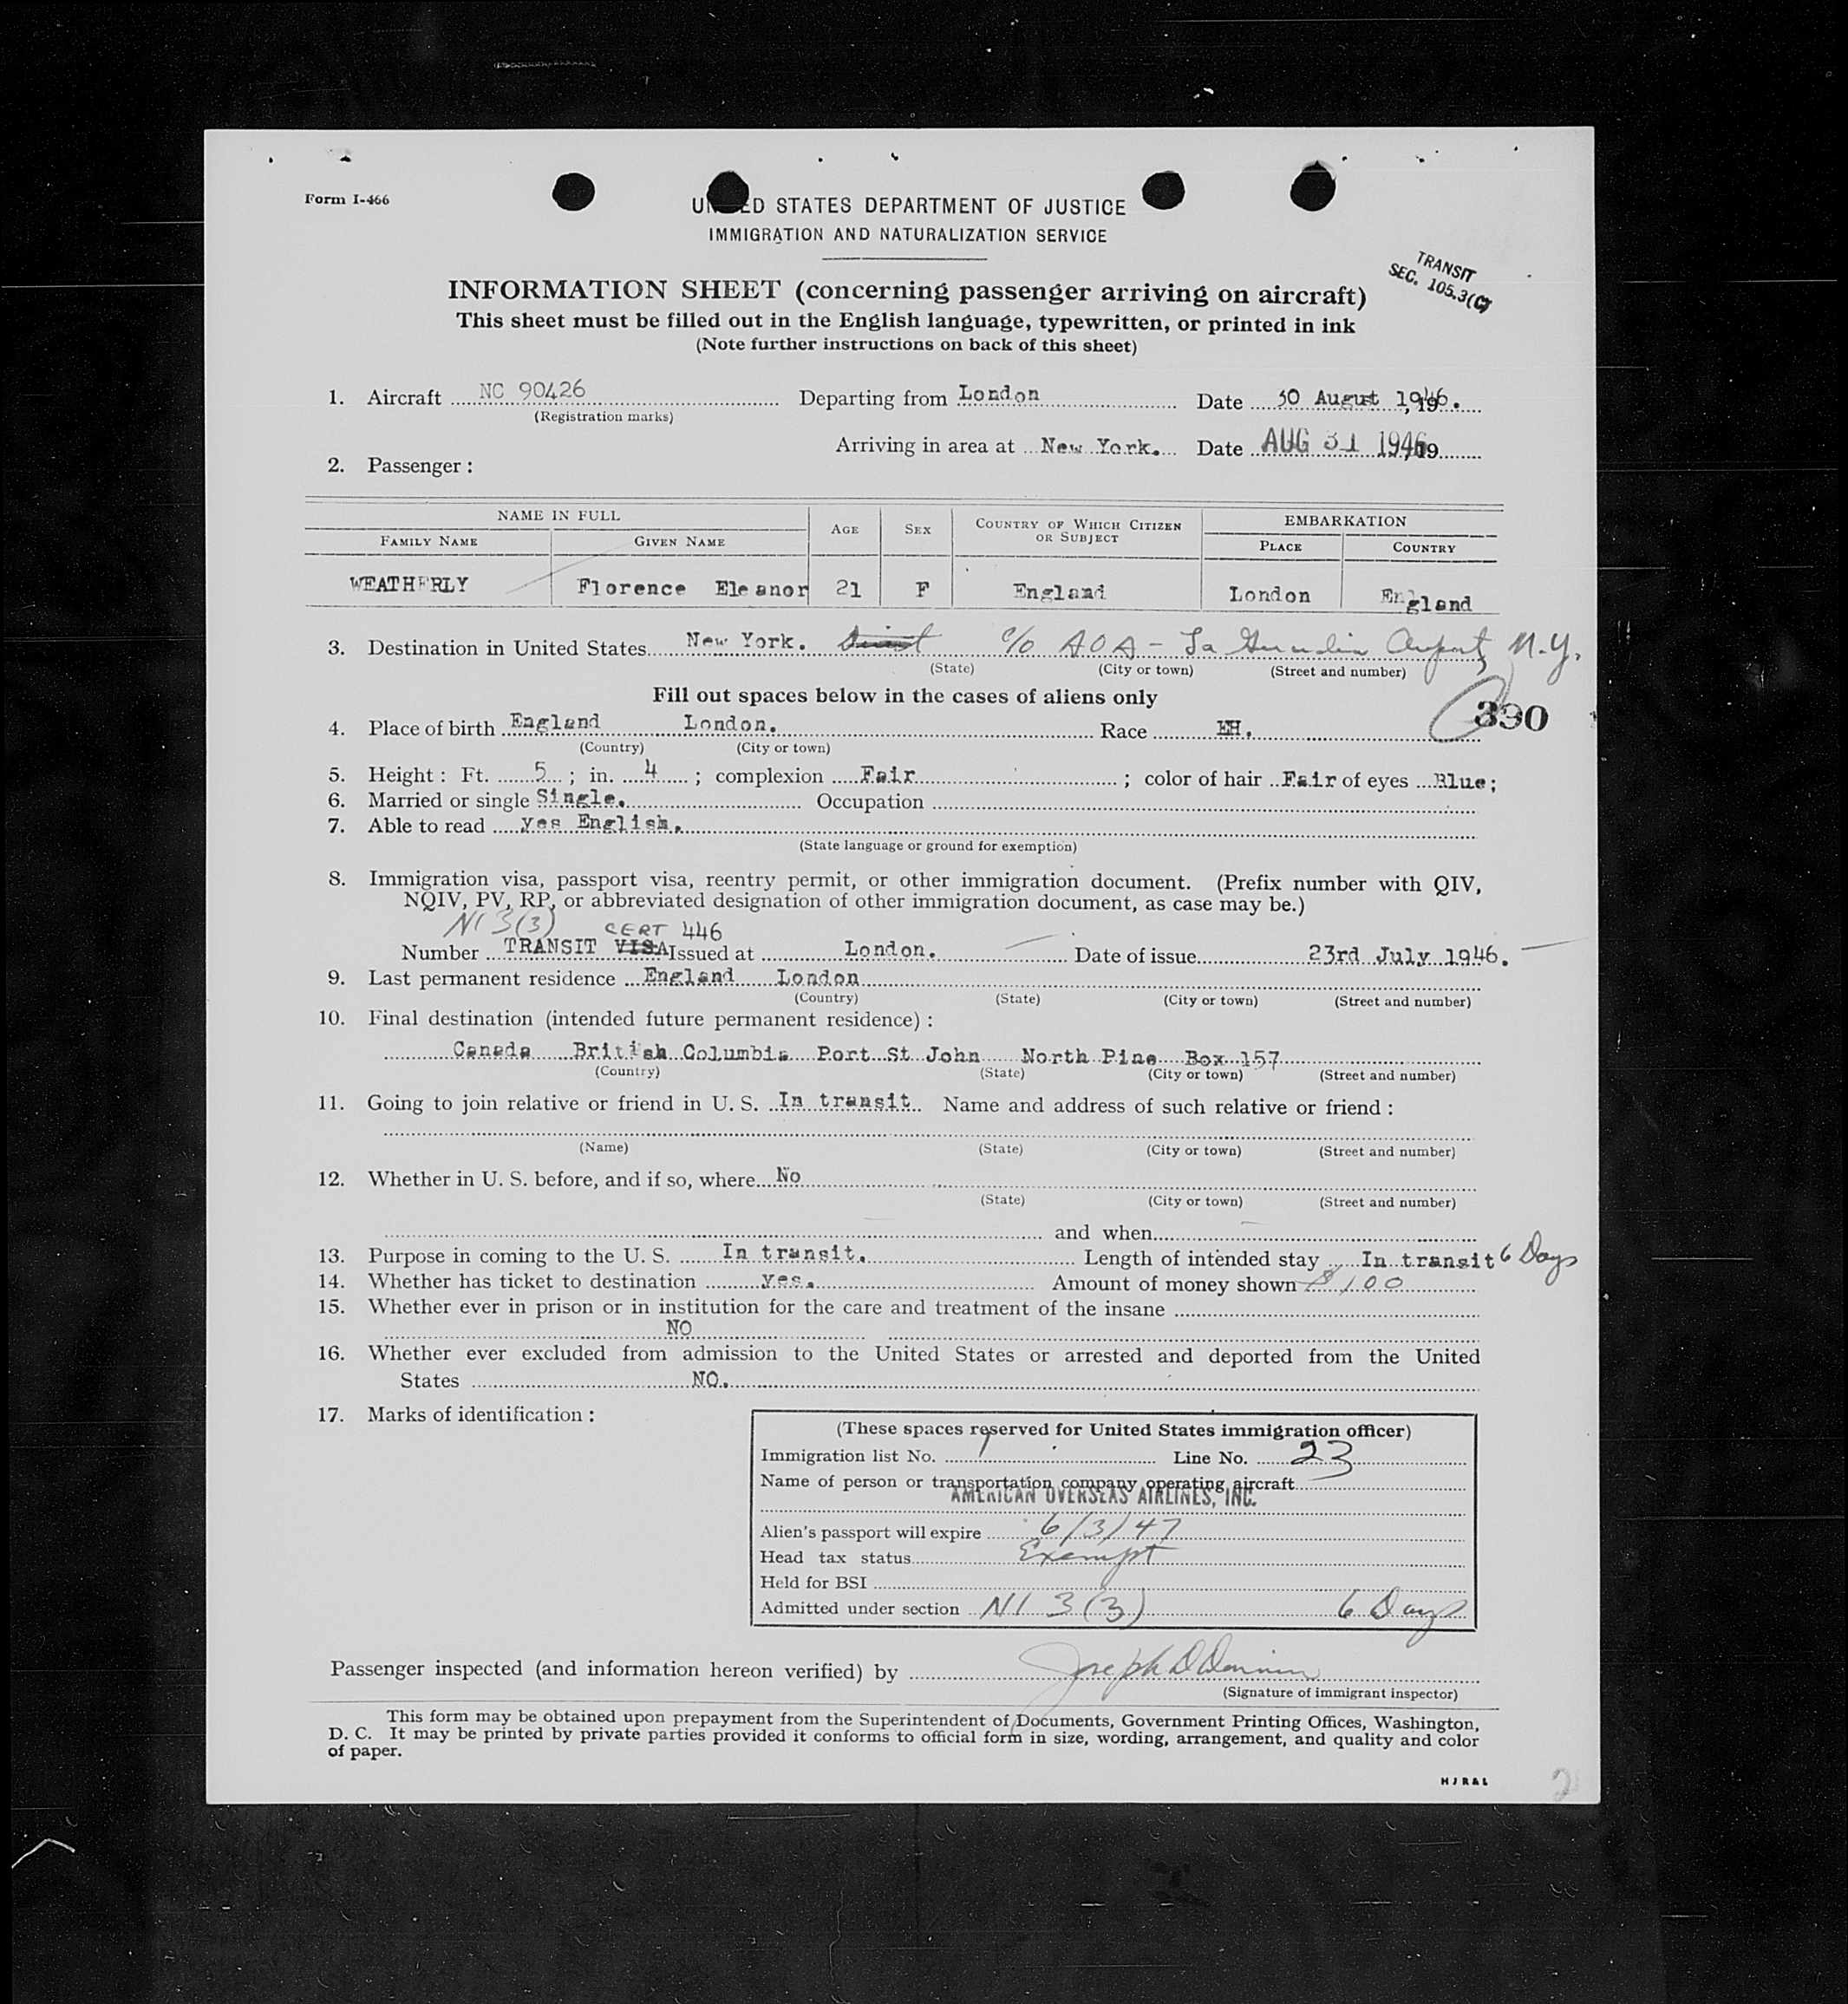 Form I-466
UNITED STATES DEPARTMENT OF JUSTICE
IMMIGRATION AND NATURALIZATION SERVICE
TRANSIT
SEC. 105.3(C)
INFORMATION SHEET (concerning passenger arriving on aircraft)
This sheet must be filled out in the English language, typewritten, or printed in ink
(Note further instructions on back of this sheet)
1. Aircraft NC 90426 Departing from London Date 30 August 1946. , 19
(Registration marks)
Arriving in area at New York. Date AUG 31 1946 , 19
2. Passenger :
NAME IN FULL AGE SEX COUNTRY OF WHICH CITIZEN OR SUBJECT EMBARKATION
FAMILY NAME GIVEN NAME PLACE COUNTRY
WEATHERLY Florence Eleanor 21 F England London England
3. Destination in United States New York. c/o AOA - La Guardia Airport, N.Y.
(State) (City or town) (Street and number)
Fill out spaces below in the cases of aliens only
390
4. Place of birth England London. Race EH.
(Country) (City or town)
5. Height : Ft. 5 ; in. 4 ; complexion Fair ; color of hair Fair of eyes Blue ;
6. Married or single Single. Occupation
7. Able to read yes English.
(State language or ground for exemption)
8. Immigration visa, passport visa, reentry permit, or other immigration document. (Prefix number with QIV,
NQIV, PV, RP, or abbreviated designation of other immigration document, as case may be.)
NI 3(3) CERT 446
Number TRANSIT VISA Issued at London. Date of issue 23rd July 1946.
9. Last permanent residence England London
(Country) (State) (City or town) (Street and number)
10. Final destination (intended future permanent residence) :
Canada British Columbia Port St John North Pine Box 157
(Country) (State) (City or town) (Street and number)
11. Going to join relative or friend in U. S. In transit Name and address of such relative or friend :
(Name) (State) (City or town) (Street and number)
12. Whether in U. S. before, and if so, where No
(State) (City or town) (Street and number)
and when
13. Purpose in coming to the U. S. In transit. Length of intended stay In transit 6 Days
14. Whether has ticket to destination yes. Amount of money shown $100
15. Whether ever in prison or in institution for the care and treatment of the insane
NO
16. Whether ever excluded from admission to the United States or arrested and deported from the United
States NO.
17. Marks of identification :
(These spaces reserved for United States immigration officer)
Immigration list No. 1 Line No. 23
Name of person or transportation company operating aircraft
AMERICAN OVERSEAS AIRLINES, INC.
Alien's passport will expire 6/3/47
Head tax status Exempt
Held for BSI
Admitted under section NI 3(3) 6 Days
Passenger inspected (and information hereon verified) by Joseph D
(Signature of immigrant inspector)
This form may be obtained upon prepayment from the Superintendent of Documents, Government Printing Offices, Washington,
D. C. It may be printed by private parties provided it conforms to official form in size, wording, arrangement, and quality and color
of paper.
HJR&L
2